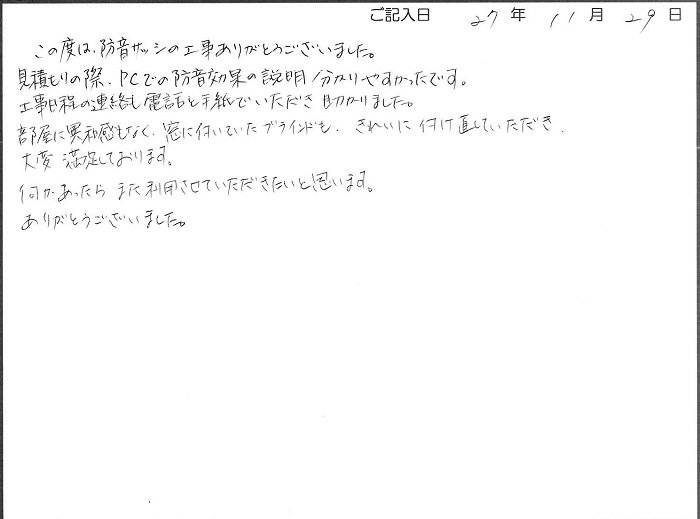 ご記入日 27年 11月 29日
この度は、防音サッシの工事ありがとうございました。
見積もりの際、PCでの防音効果の説明分かりやすかったです。
工事日程の連絡も電話と手紙でいただき助かりました。
部屋に異和感もなく、窓に付いていたブラインドも、きれいに付け直していただき、
大変満足しております。
何かあったらまた利用させていただきたいと思います。
ありがとうございました。